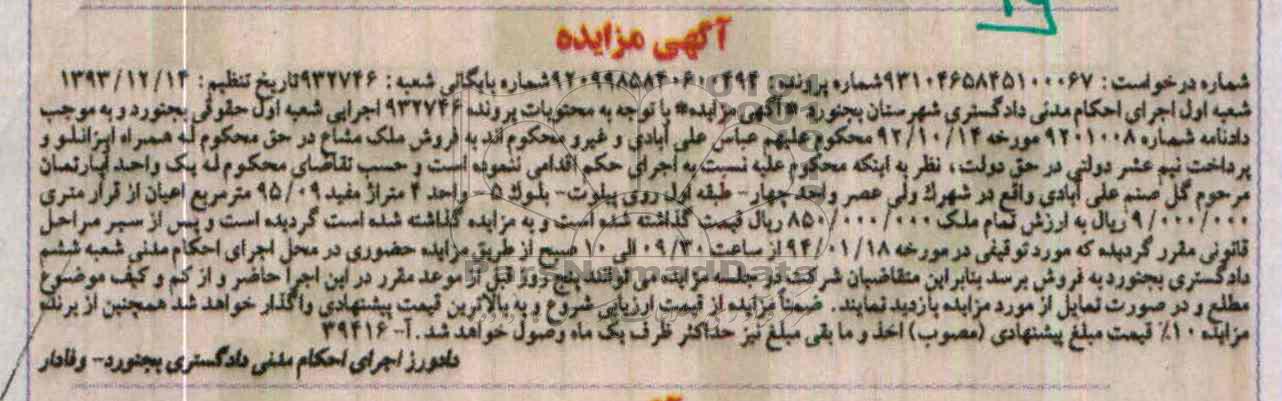 آگهی مزایده
شماره درخواست: ۹۳۱۰۴۶۵۸۴۵۱۰۰۰۶۷شماره پرونده: ۹۲۰۹۹۸۵۸۴۰۶۰۰۴۹۴شماره بایگانی شعبه: ۹۳۲۷۴۶تاریخ تنظیم: ۱۳۹۳/۱۲/۱۴
شعبه اول اجرای احکام مدنی دادگستری شهرستان بجنورد *آگهی مزایده* با توجه به محتویات پرونده ۹۳۲۷۴۶ اجرایی شعبه اول حقوقی بجنورد و به موجب
دادنامه شماره ۹۲۰۱۰۰۸ مورخه ۹۲/۱۰/۱۴ محکوم علیهم عباس علی آبادی و غیرو محکوم اند به فروش ملک مشاع در حق محکوم له همراه ایزانلو و
پرداخت نیم عشر دولتی در حق دولت، نظر به اینکه محکوم علیه نسبت به اجرای حکم اقدامی ننموده است و حسب تقاضای محکوم له یک واحد آپارتمان
مرحوم گل صنم علی آبادی واقع در شهرک ولی عصر واحد چهار- طبقه اول روی پیلوت- بلوک ۵- واحد ۴ متراژ مفید ۹۵/۰۹ مترمربع اعیان از قرار متری
۹/۰۰۰/۰۰۰ ریال به ارزش تمام ملک ۸۵۰/۰۰۰/۰۰۰ ریال قیمت گذاشته شده است و به مزایده گذاشته شده است گردیده است و پس از سیر مراحل
قانونی مقرر گردیده که مورد توقیفی در مورخه ۹۴/۰۱/۱۸ از ساعت ۰۹/۳۰ الی ۱۰ صبح از طریق مزایده حضوری در محل اجرای احکام مدنی شعبه ششم
دادگستری بجنورد به فروش برسد بنابراین متقاضیان شرکت در جلسه مزایده می توانند پنج روز قبل از موعد مقرر در این اجرا حاضر و از کم و کیف موضوع
مطلع و در صورت تمایل از مورد مزایده بازدید نمایند. ضمناً مزایده از قیمت ارزیابی شروع و به بالاترین قیمت پیشنهادی واگذار خواهد شد همچنین از برنده
مزایده ۱۰٪ قیمت مبلغ پیشنهادی (مصوب) اخذ و ما بقی مبلغ نیز حداکثر ظرف یک ماه وصول خواهد شد. آ- ۳۹۴۱۶
دادورز اجرای احکام مدنی دادگستری بجنورد- وفادار
ParsNamadData